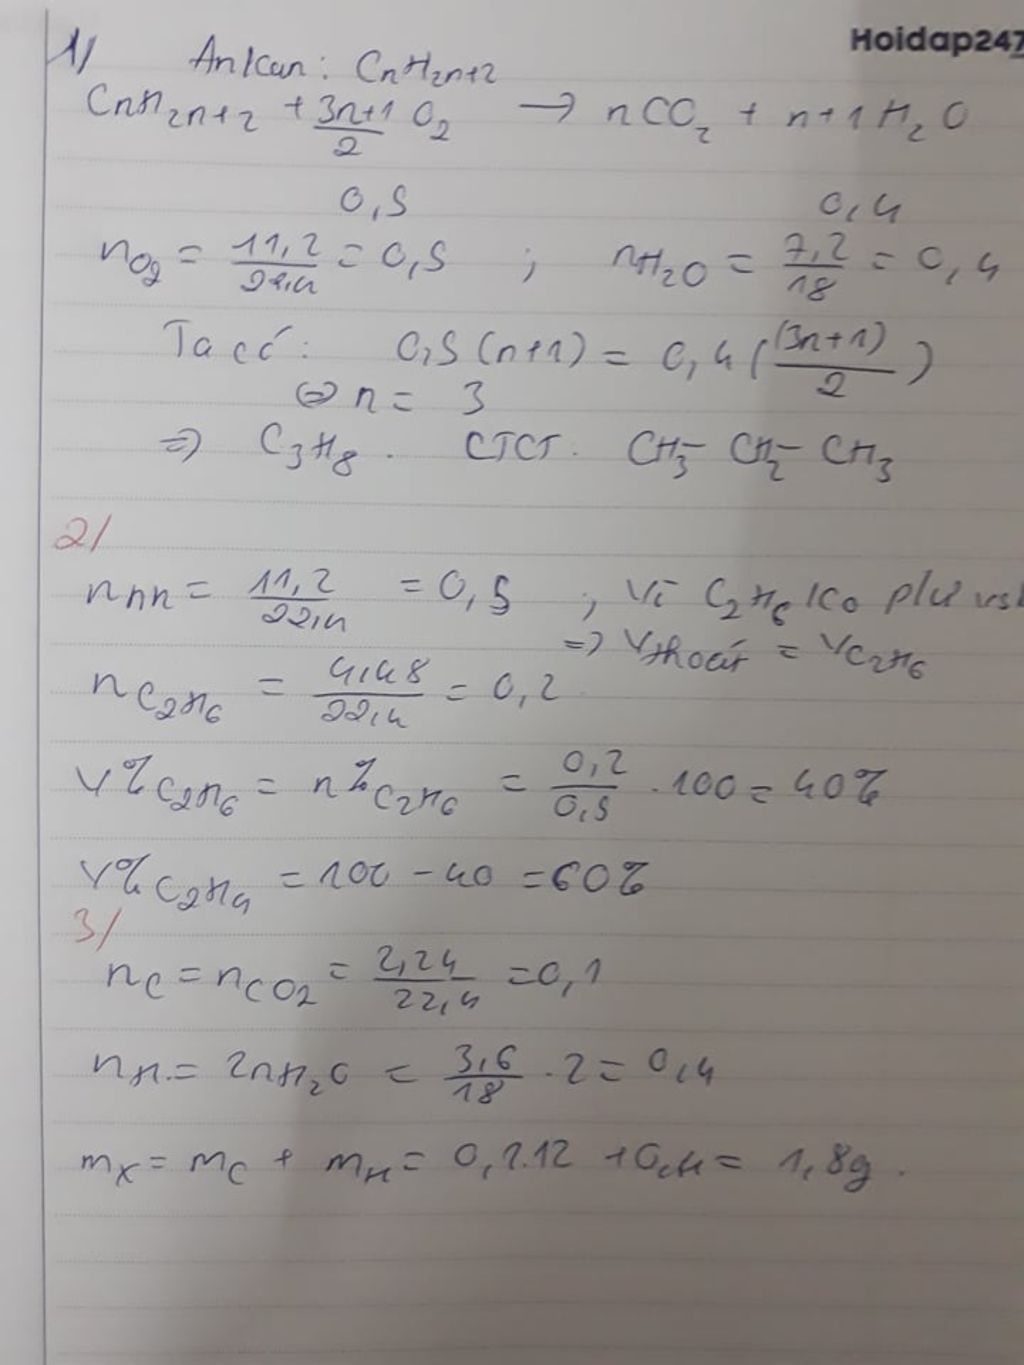 Hoidap247
1/ Ankan: CnH2n+2
CnH2n+2 + 3n+1/2 O2 → nCO2 + n+1 H2O
0,5 0,4
nO2 = 11,2/22,4 = 0,5 ; nH2O = 7,2/18 = 0,4
Ta có: 0,5(n+1) = 0,4((3n+1)/2)
⇔ n = 3
⇒ C3H8. CTCT: CH3-CH2-CH3
2/
nhh = 11,2/22,4 = 0,5 ; Vì C2H6 ko pứ vs
⇒ Vthoát = VC2H6
nC2H6 = 4,48/22,4 = 0,2
V%C2H6 = n%C2H6 = 0,2/0,5 . 100 = 40%
V%C2H4 = 100 - 40 = 60%
3/
nC = nCO2 = 2,24/22,4 = 0,1
nH = 2nH2O = 3,6/18 . 2 = 0,4
mX = mC + mH = 0,1.12 + 0,4 = 1,8g.